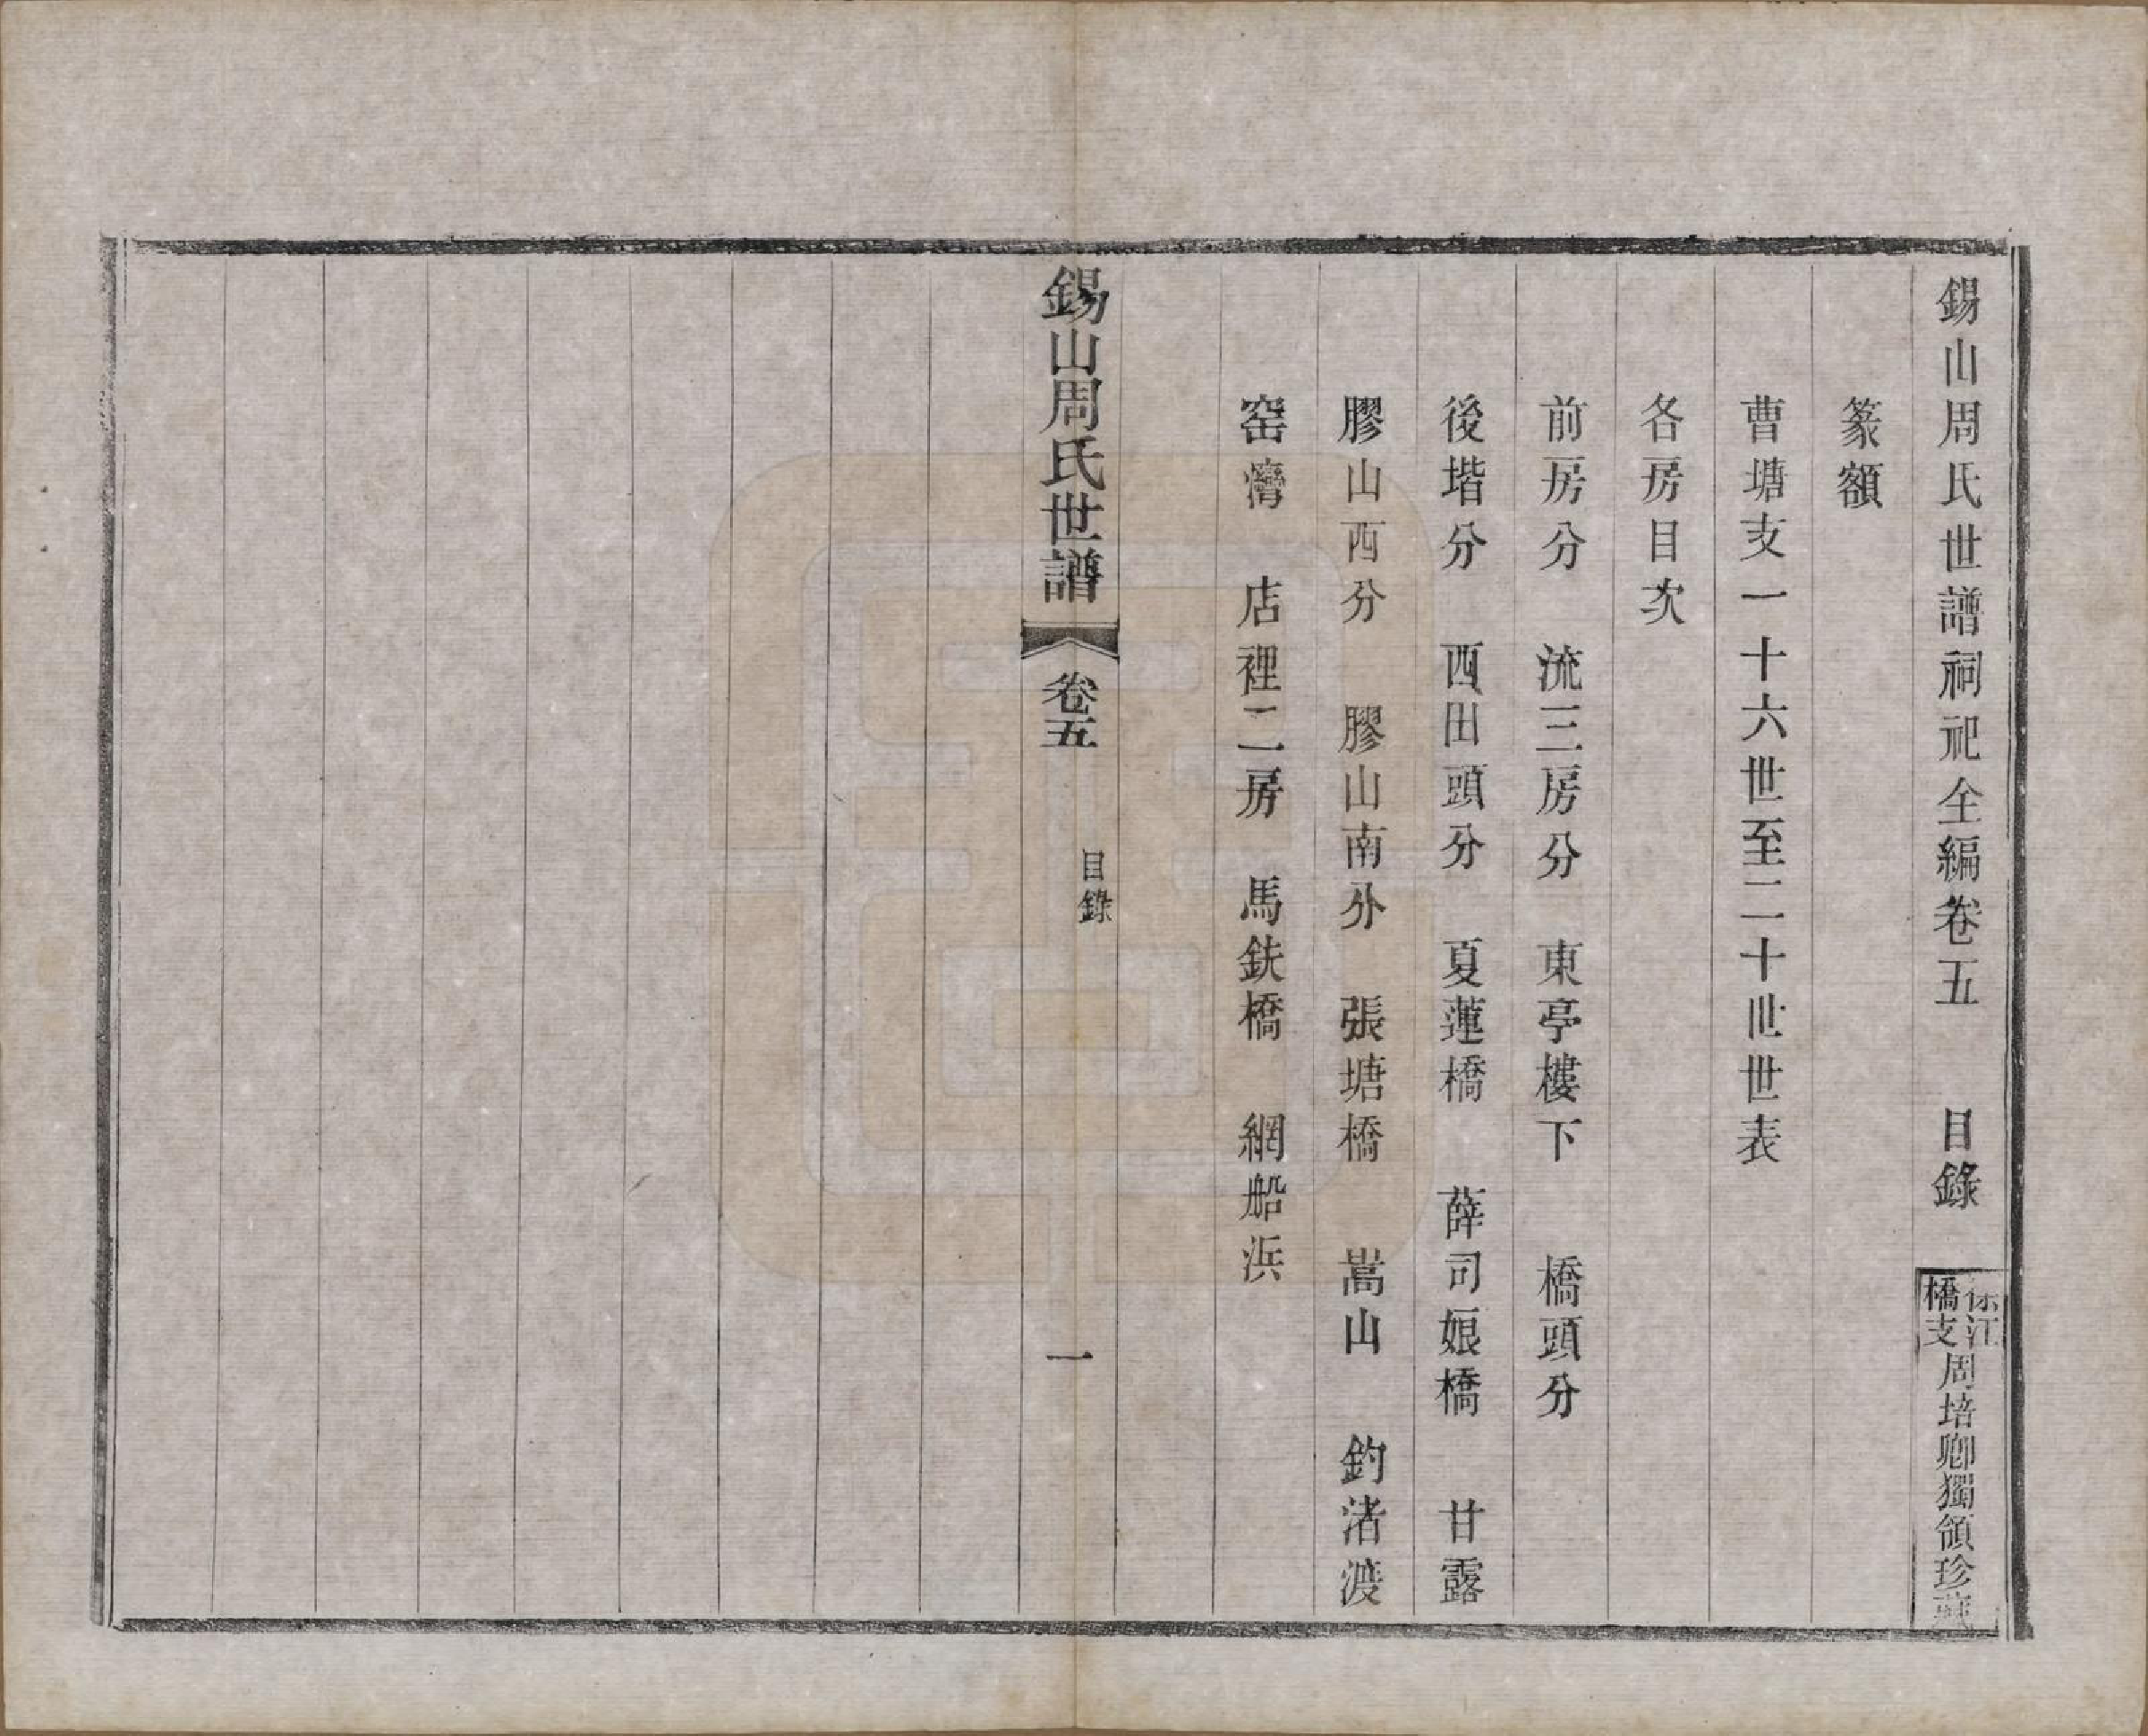 錫山周氏世譜祠祀全編卷五　目錄
徐江橋支周培卿獨領珍藏
篆額
曹塘支一十六世至二十世世表
各房目次
前房分　流三房分　東亭樓下　橋頭分
後堦分　西田頭分　夏蓮橋　薛司娘橋　甘露
膠山西分　膠山南分　張塘橋　嵩山　釣渚渡
窑灣　店裡二房　馬鉄橋　網船浜
錫山周氏世譜　卷五　目錄　一